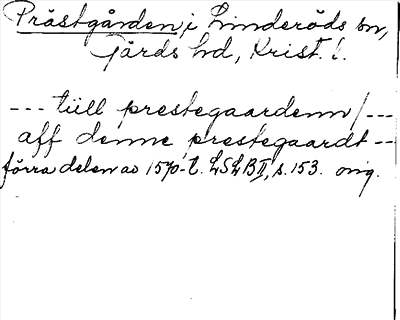 Prästgården, i Linderöds sn,
Gärds hd, Krist. l.
--- tüll prestegaardenn/---
aff denne prestegaardt --
förra delen av 1570-t. LSLB II, s. 153. orig.